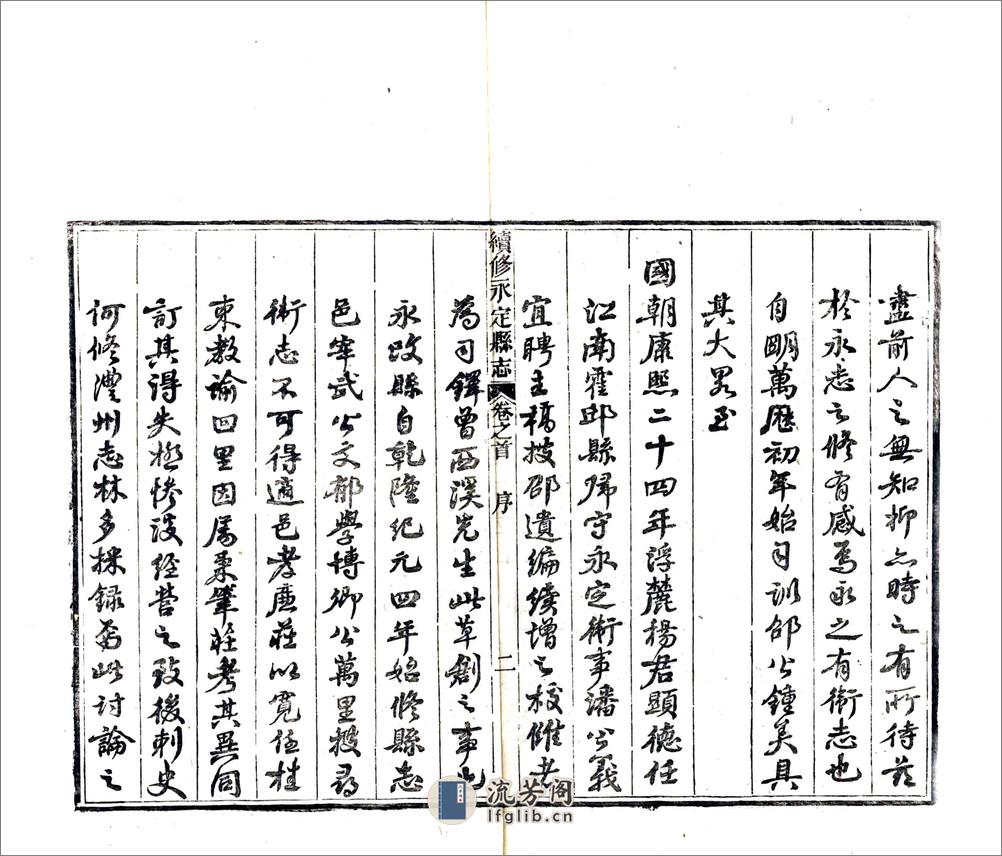 盡前人之無知抑亦時之有所待茲
於永志之修有感焉永之有衛志也
自明萬曆初年始司訓邵公鍾美具
其大畧至
國朝康熙二十四年浮麓楊君顯德任
江南霍邱縣歸守永定衛事潘公義
宜聘主稿披邵遺編續增之校讎者
為司鐸曾西溪先生此草創之事也
續修永定縣志 卷之首 序 二
永改縣自乾隆紀元四年始修縣志
邑宰武公文郁學博卿公萬里披尋
衛志不可得適邑孝廉莊以寬任桂
東教諭回里因屬秉筆莊考其異同
訂其得失極慘淡經營之致後刺史
何修澧州志林多採錄焉此討論之
流芳阁
lfglib.cn